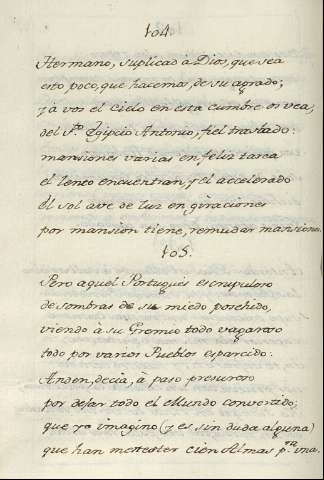 104.
Hermano, suplicad à Dios, que sea
esto poco, que hacemos, de su agrado;
y à vos el Cielo en esta cumbre os vea,
del S.to Egipcio Antonio, fiel traslado:
mansiones varias en feliz tarea
el lento encuentran, y el accelerado
el sol ave de luz en giraciones
por mansion tiene, remudar mansiones.
105.
Pero aquel Portugués escrupuloso
de sombras de su miedo posehido,
viendo à su Gremio todo vagaroso
todo por varios Pueblos esparcido:
Anden, decia, à paso presuroso
por dejar todo el Mundo convertido;
que yo imagino (y es sin duda alguna)
que han menester cien Almas p.ra una.